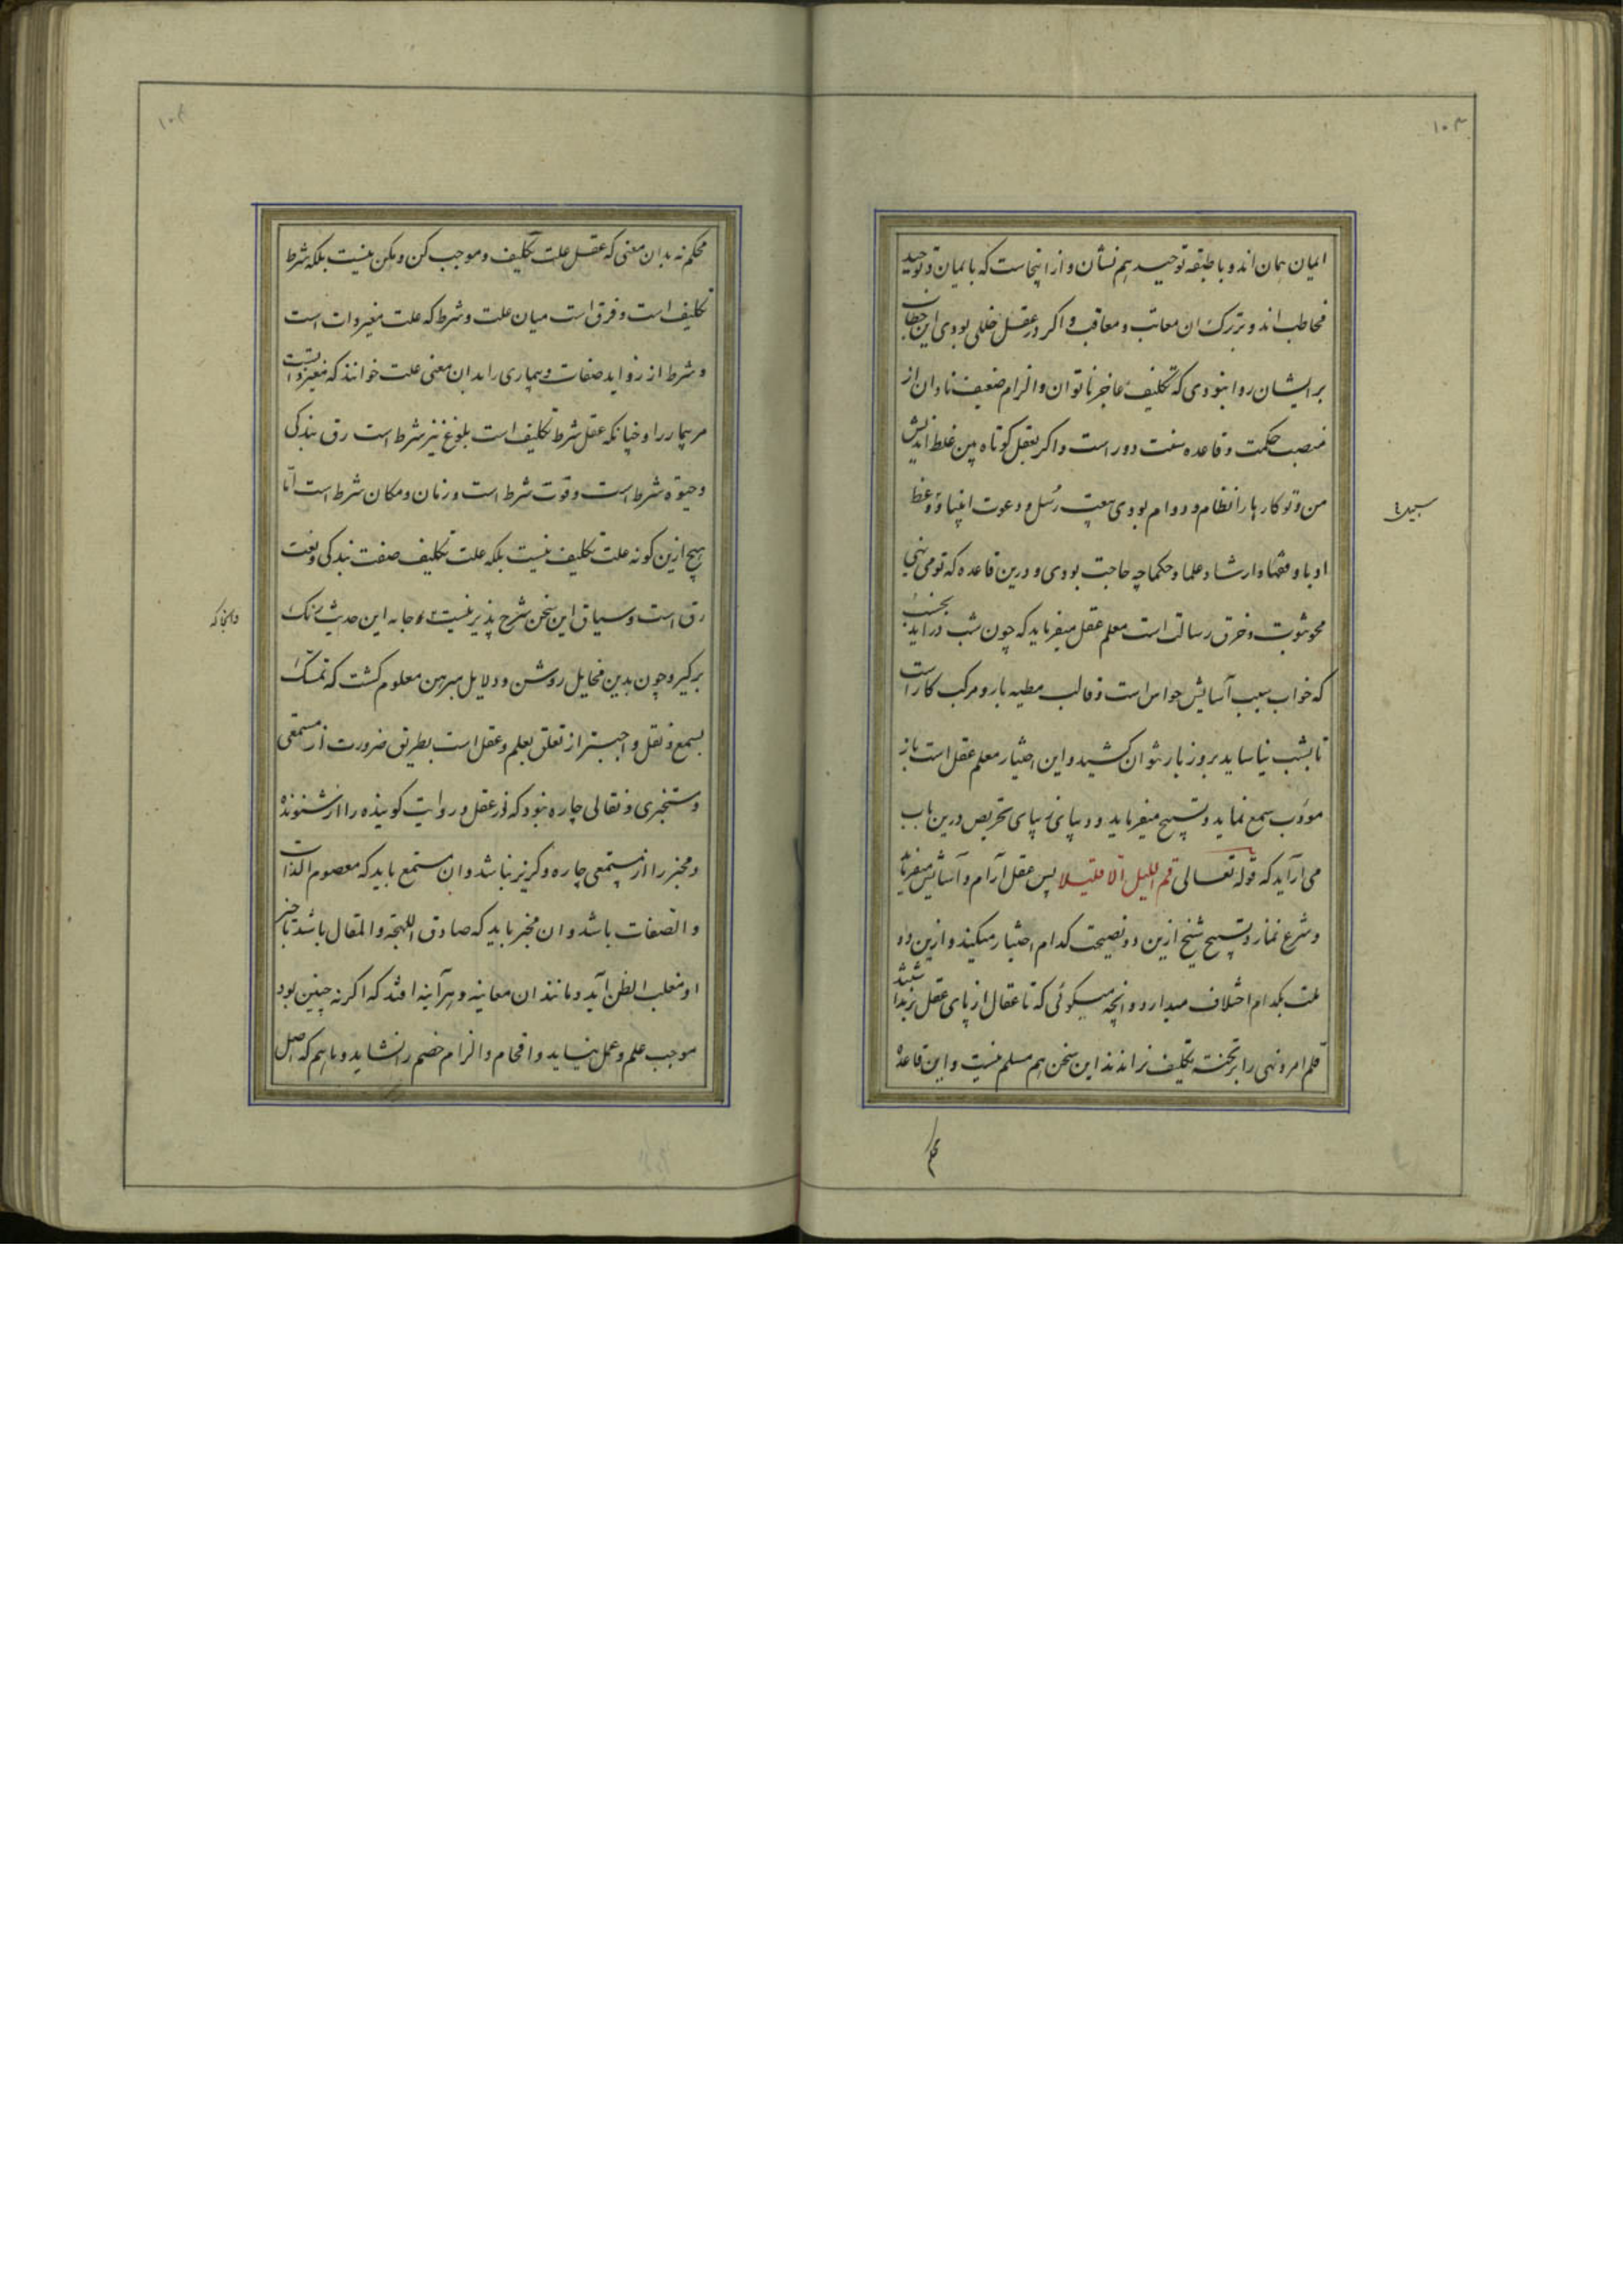 ۱۰۳
ایمان همان اند و با طبقه توحید هم نشان و از اینجاست که بایمان و توحید
مخاطب اند و بترک ان معاتب و معاقب و اکر در عقل خللی بودی این خطاب
بر ایشان روا نبودی که تکلیف عاجز ناتوان و الزام ضعیف نادان از
منصب حکمت و قاعده سنت دور است و اکر بعقل کوتاه بین غلط اندیش
من و تو کارها را نظام و دوام بودی ببعث رسل و دعوت انبیا و وعظ
ادبا و فقها و ارشاد علما و حکما چه حاجت بودی و درین قاعده که تو می نهی
محو نبوت و خرق رسالت است معلم عقل میفرماید که چون شب دراید بخسب
که خواب سبب آسایش حواس است و قالب مطیه بار و مرکب کار است
تا بشب نیاساید بروز بار نتوان کشید و این اختیار معلم عقل است باز
مودب سمع نماید و تسبیح میفرماید و و بپای تحریص درین باب
می آراید که قوله تعالی قم اللیل الا قلیلا پس عقل آرام و آسایش میفرماید
و شرع نماز و تسبیح شیخ ازین دو نصیحت کدام اختیار میکند و ازین دو
ملت بکدام اختلاف میدارد و آنچه میگوئی که تا عقال از پای عقل بر نداشتند
قلم امر و نهی را بر تخته تکلیف نراندند این سخن هم مسلم نیست و این قاعده
محکم
محکم نه بدان معنی که عقل علت تکلیف و موجب کن و مکن نیست بلکه شرط
تکلیف است و فرق است میان علت و شرط که علت مغیر ذات است
و شرط از زواید صفات و بیماری را بدان معنی علت خوانند که مغیر ذاتست
مر بیمار را و چنانکه عقل شرط تکلیف است بلوغ نیز شرط است رق بندکی
و حیوة شرط است و قوت شرط است و زمان و مکان شرط است اما
هیچ ازین کونه علت تکلیف نیست بلکه علت تکلیف صفت بندکی و نعت
رق است و سیاق این سخن شرح پذیر نیست و جامه این حدیث رنک
برکیر و چون بدین مخایل روشن و دلایل مبرهن معلوم کشت که تمسک
بسمع و نقل واجبتر از تعلق بعلم و عقل است بطریق ضرورت از مستمعی
و مستخبری و نقالی چاره نبود که در عقل و روایت کوینده را از شنونده
و مخبر را از مستمعی چاره و کریز نباشد و ان مستمع باید که معصوم الذات
و الصفات باشد و ان مخبر باید که صادق اللهجه و المقال باشد تا خبر
او مغلب الظن آید و مانند ان معاینه و هرآینه افتد که اکر نه چنین بود
موجب علم و عمل نیاید و افحام و الزام خصم را نشاید و ما هم که اصل